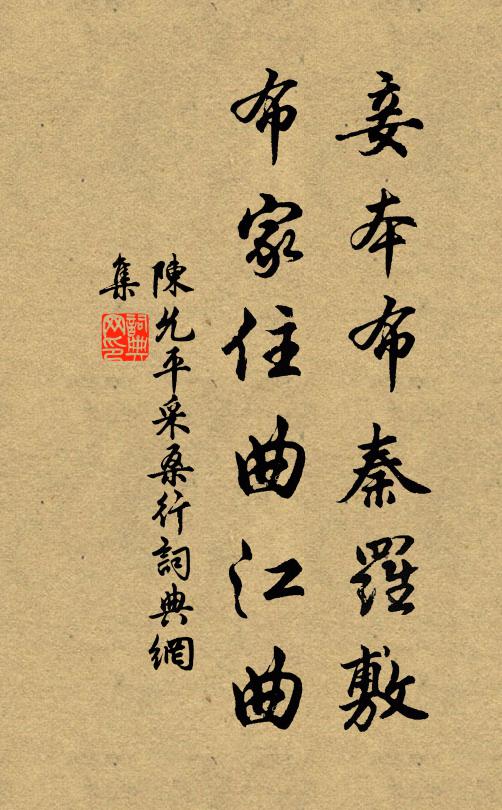 妾本布秦羅敷
布家住曲江曲
陳允平采桑行詞典網
集
詞典网印